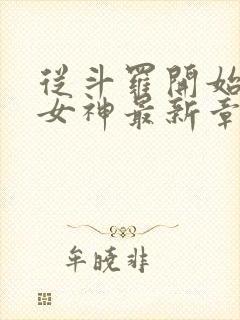 從斗羅開始
女神最新章
牟曉非